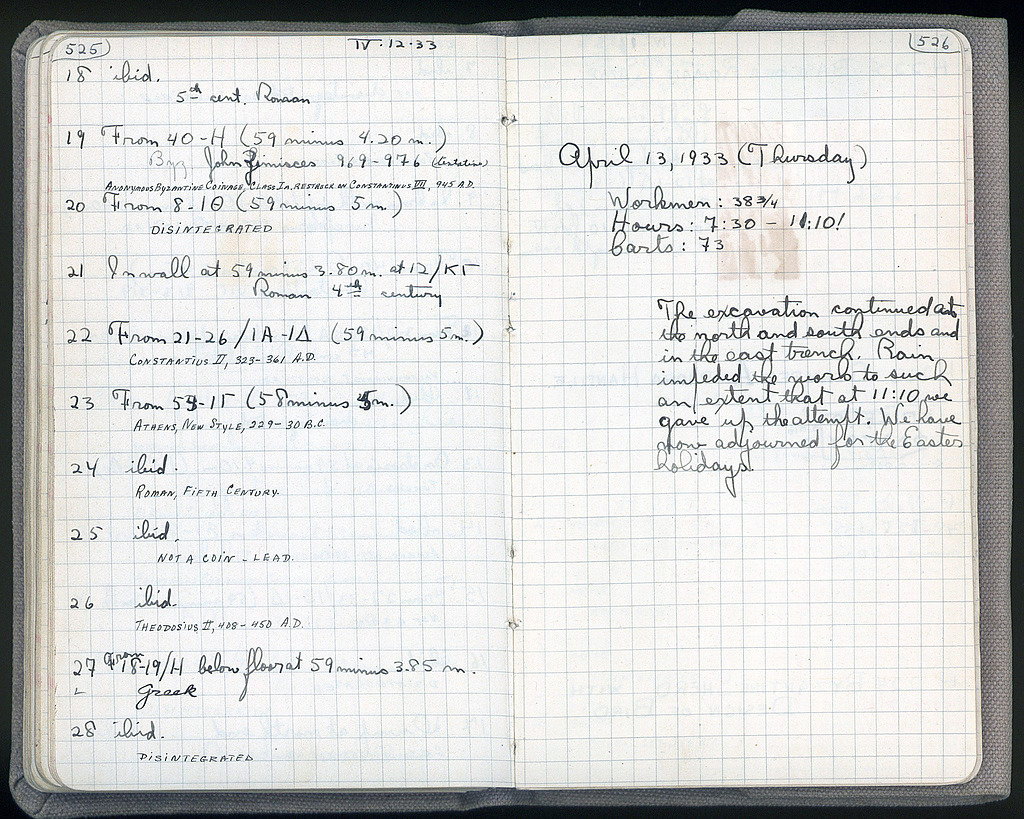 525
IV.12.33
18 ibid.
5th cent. Roman
19 From 40-H (59 minus 4.20 m.)
Byz John Zimisces 969-976 (tentative)
ANONYMOUS BYZANTINE COINAGE, CLASS Ia, RESTRUCK ON CONSTANTINUS VII, 945 A.D.
20 From 8-10 (59 minus 5 m.)
DISINTEGRATED
21 In wall at 59 minus 3.80 m. at 12/KΓ
Roman 4th century
22 From 21-26/IA-IΔ (59 minus 5 m.)
CONSTANTIUS II, 323-361 A.D.
23 From 53-IΓ (58 minus 5 m.)
ATHENS, NEW STYLE, 229-30 B.C.
24 ibid.
ROMAN, FIFTH CENTURY.
25 ibid.
NOT A COIN - LEAD.
26 ibid.
THEODOSIUS II, 408-450 A.D.
27 From 18-19/H below floor at 59 minus 3.85 m.
Greek
28 ibid.
DISINTEGRATED
526
April 13, 1933 (Thursday)
Workmen: 38 3/4
Hours: 7:30 - 11:10!
Carts: 73
The excavation continued at
the north and south ends and
in the east trench. Rain
impeded the work to such
an extent that at 11:10 we
gave up the attempt. We have
now adjourned for the Easter
holidays.